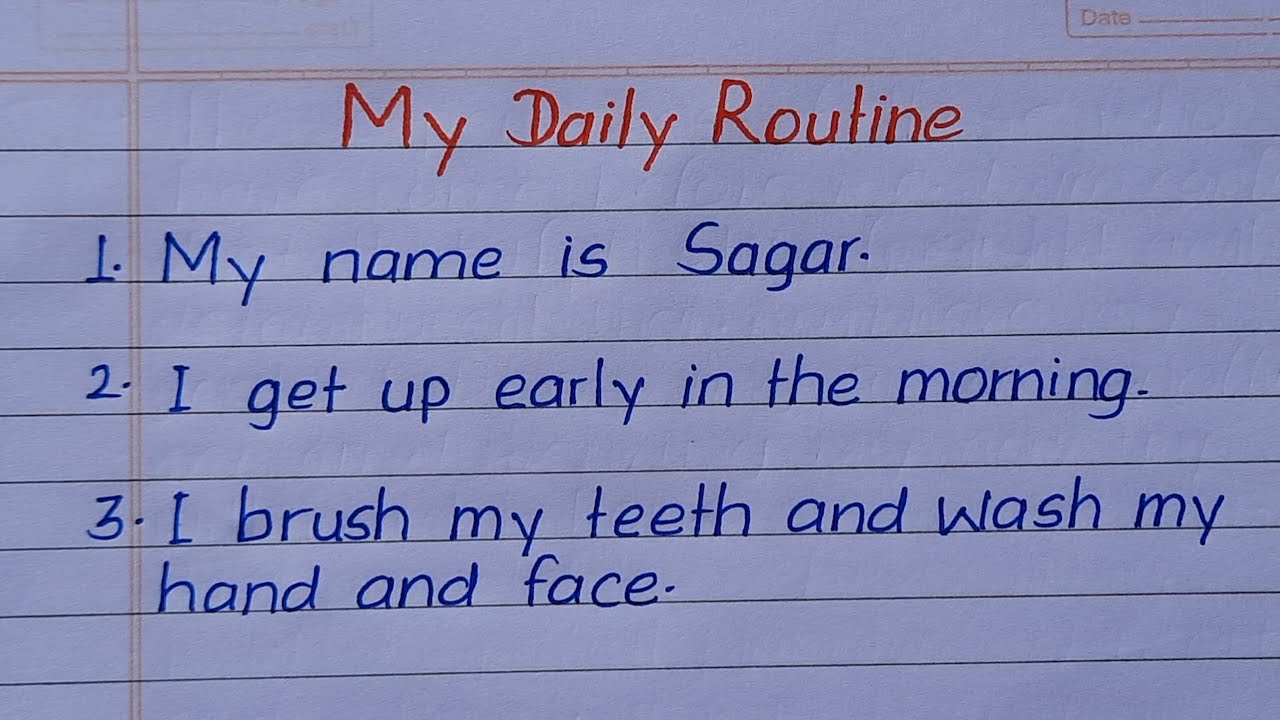 Date
My Daily Routine
1. My name is Sagar.
2. I get up early in the morning.
3. I brush my teeth and wash my
hand and face.